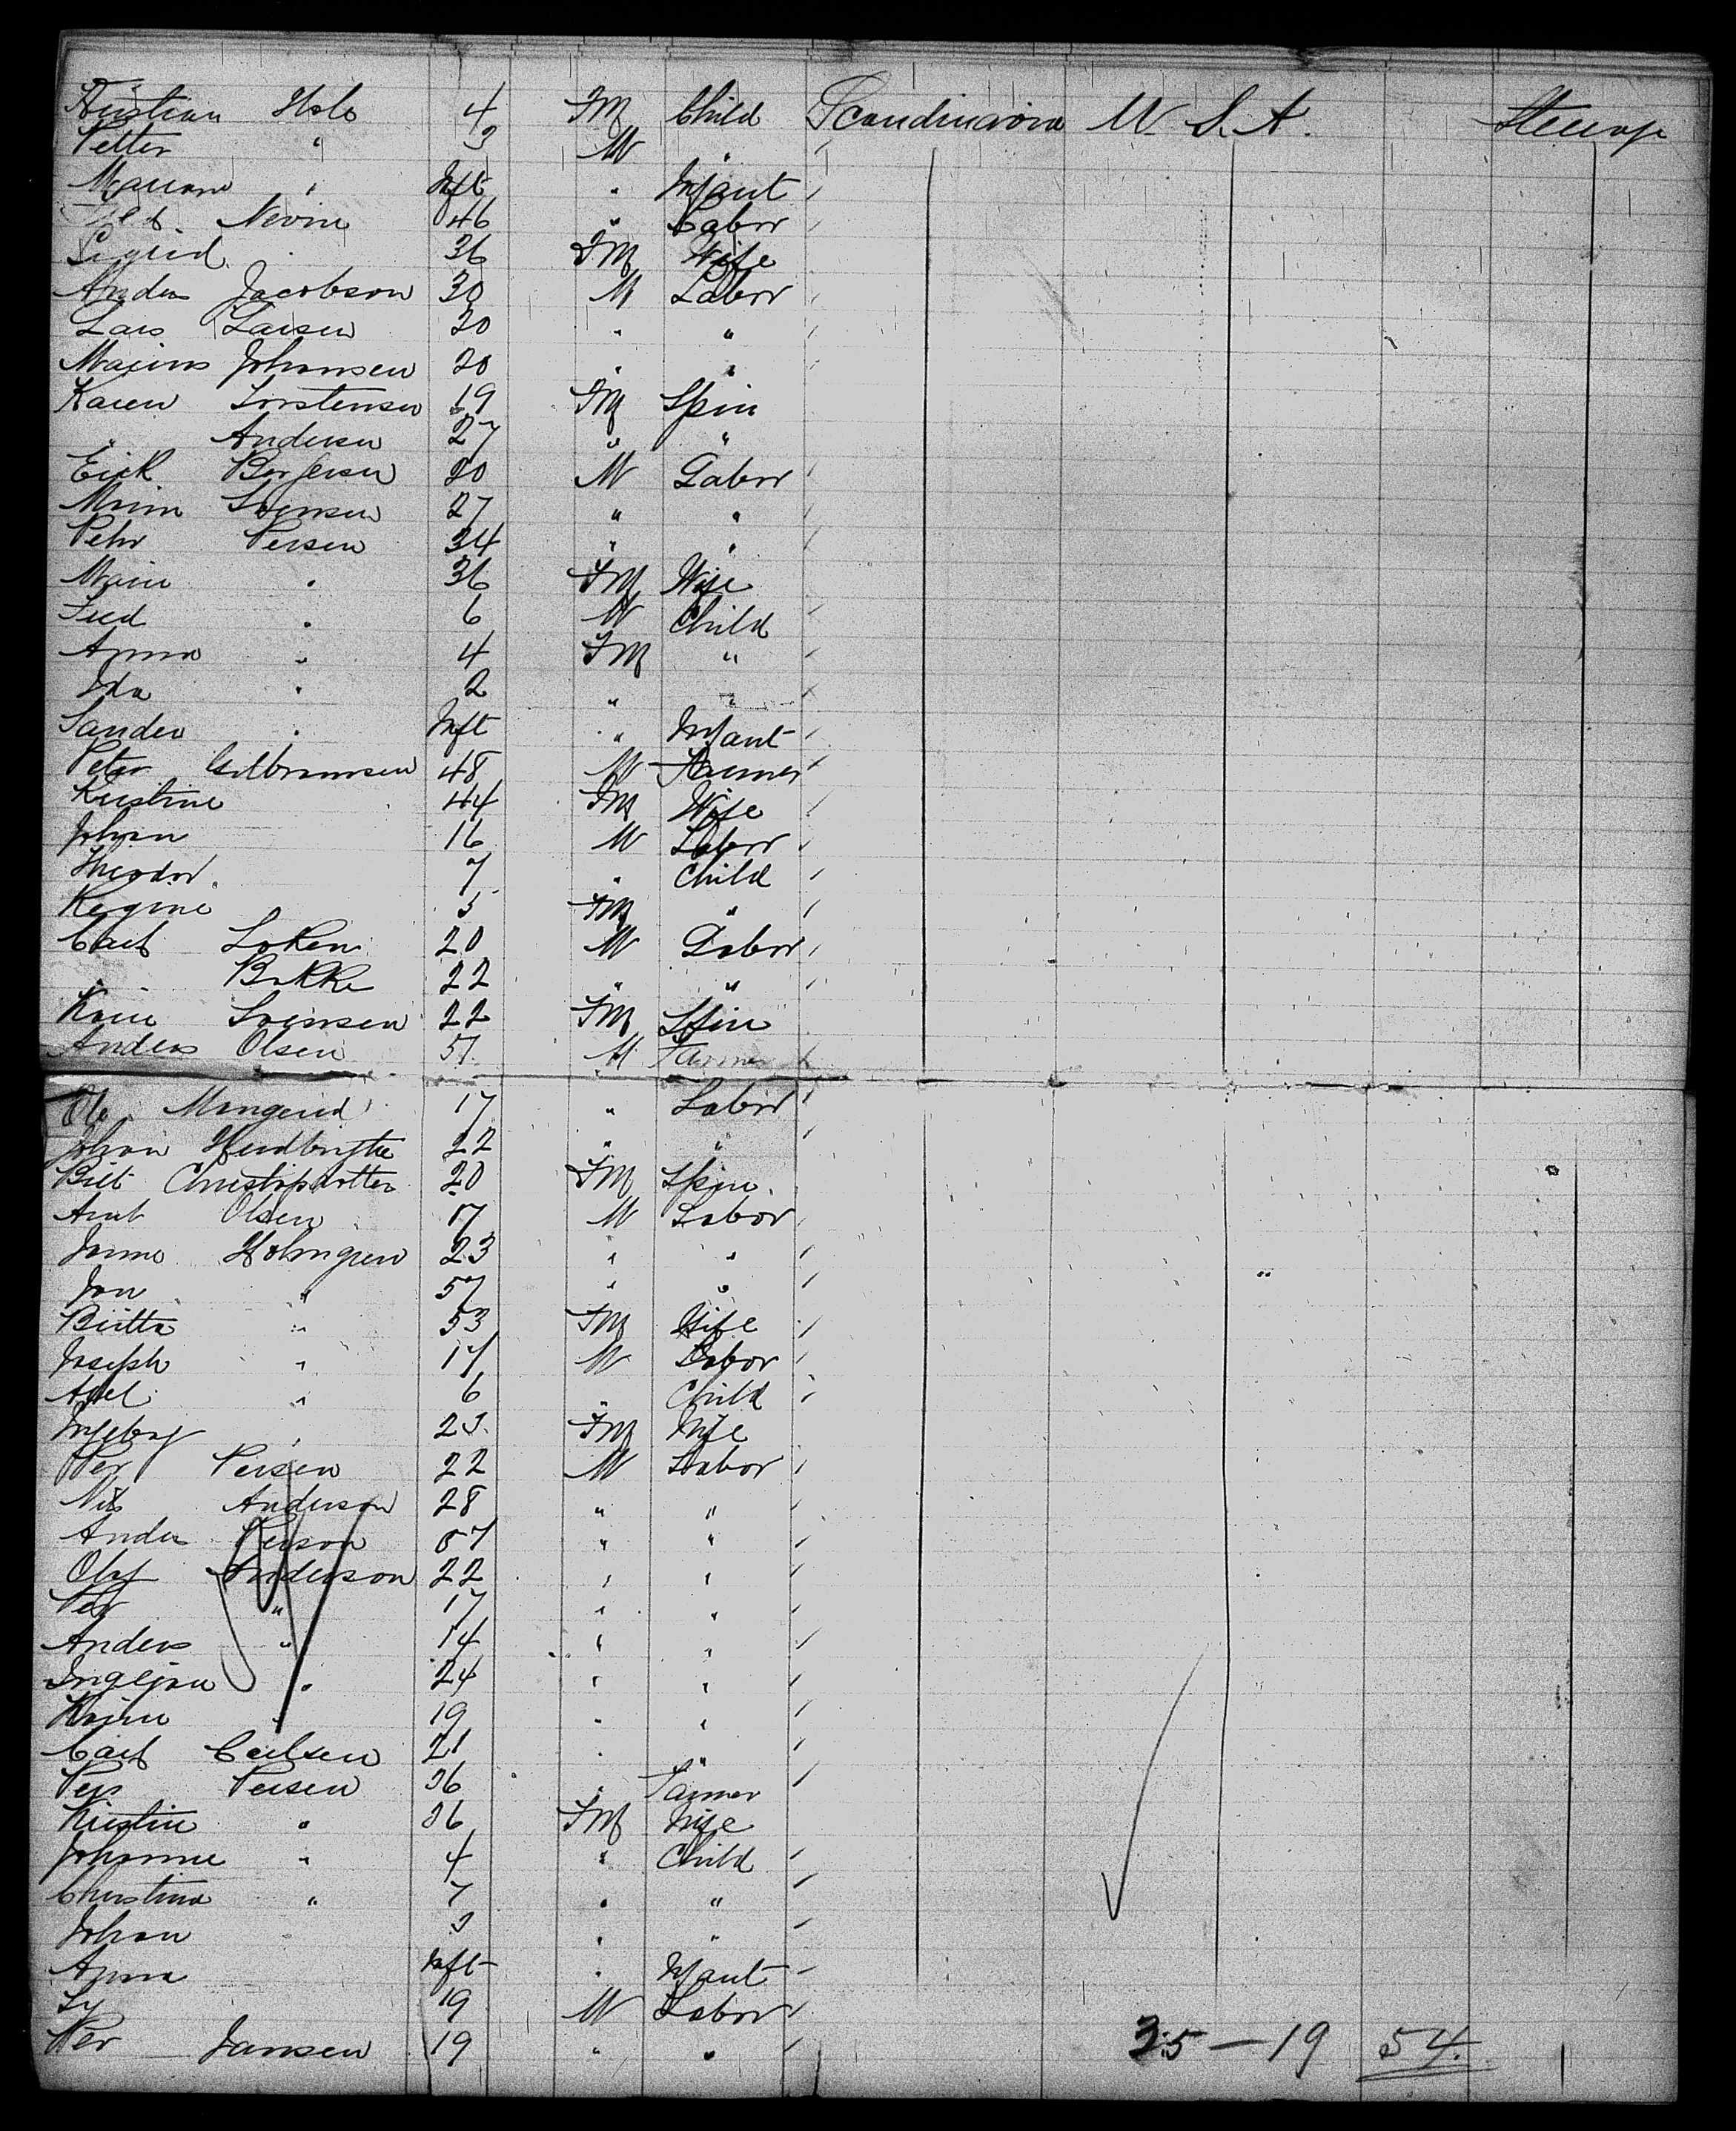 Kristian Holo 4 Fm Child Scandinavia U. S. A. Steerage
Petter " 3 M "
" Inft " Infant
Nevin 46 " Labor
Sigrid " 36 Fm Wife
Anders Jacobson 30 M Labor
Lars Larsen 20 " "
Marius Johansen 20 " "
Karen Torstensen 19 Fm Spin
" Andersen 27 " "
Erik 20 M Labor
Svensen 27 " "
Pehr Persen 34 " "
Marie " 36 Fm Wife
" 6 M Child
Anna " 4 Fm "
Ida " 2 " "
Sander " Inft " Infant
Peter Gulbransen 48 M Farmer
Kirstine 44 Fm Wife
Johan 16 M Labor
Theodor 7 " Child
Regine 5 Fm "
Carl Loken 20 M Labor
" Bakke 22 " "
Karin Svensen 22 Fm Spin
Anders Olsen 51 M Farmer
Ole Mangerud 17 " Labor
Johan 22 " "
Brit 20 Fm Spin
Arnt Olsen 17 M Labor
Holmgren 23 " "
Jon " 57 " "
Britta " 53 Fm Wife
Joseph " 17 M Labor
Axel " 6 " Child
Ingeborg " 23 Fm Wife
Per Persen 22 M Labor
Nils Anderson 28 " "
Anders Person 57 " "
Olaf Anderson 22 " "
Per " 17 " "
Anders " 14 " "
" 24 " "
Karin " 19 " "
Carl Carlsen 21 " "
Per Persen 36 " Farmer
Kirstin " 36 Fm Wife
Johanne " 4 " Child
Christina " 7 " "
Johan " 3 " "
Anna Inft " Infant
19 M Labor
Per Jansen 19 " "
35 — 19 54.